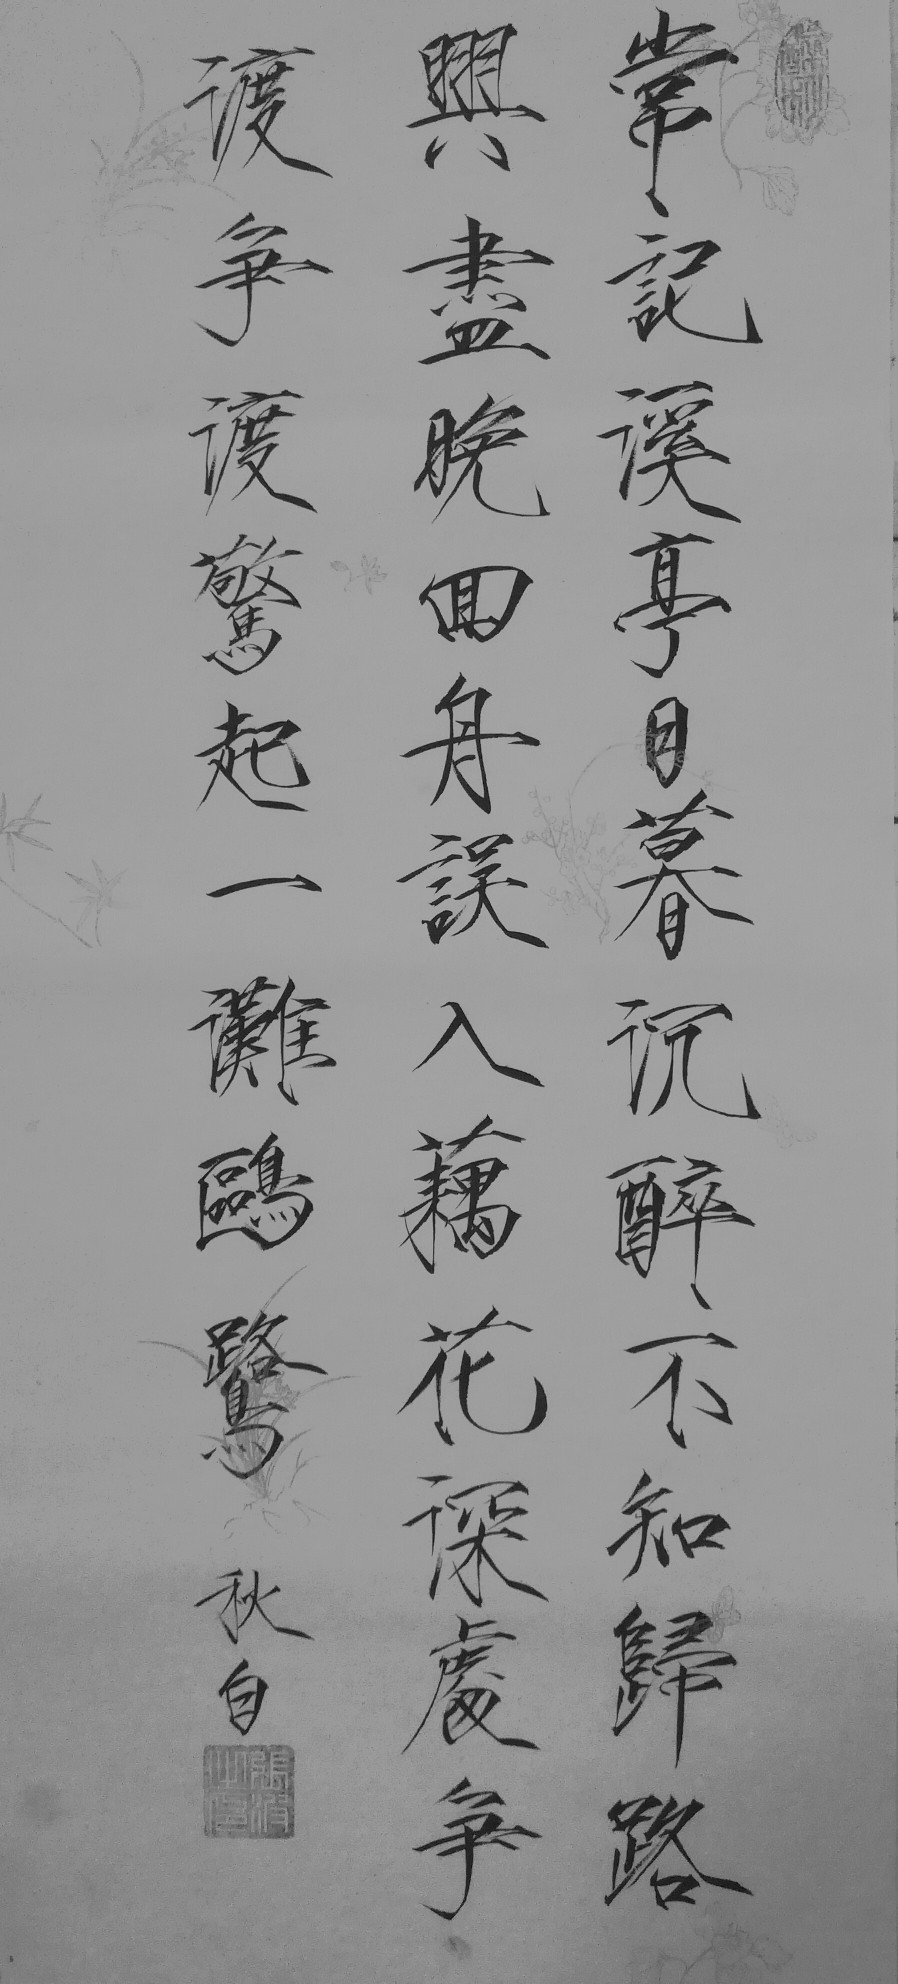 常記溪亭日暮沉醉不知歸路
興盡晚回舟誤入藕花深處爭
渡爭渡驚起一灘鷗鷺 秋白